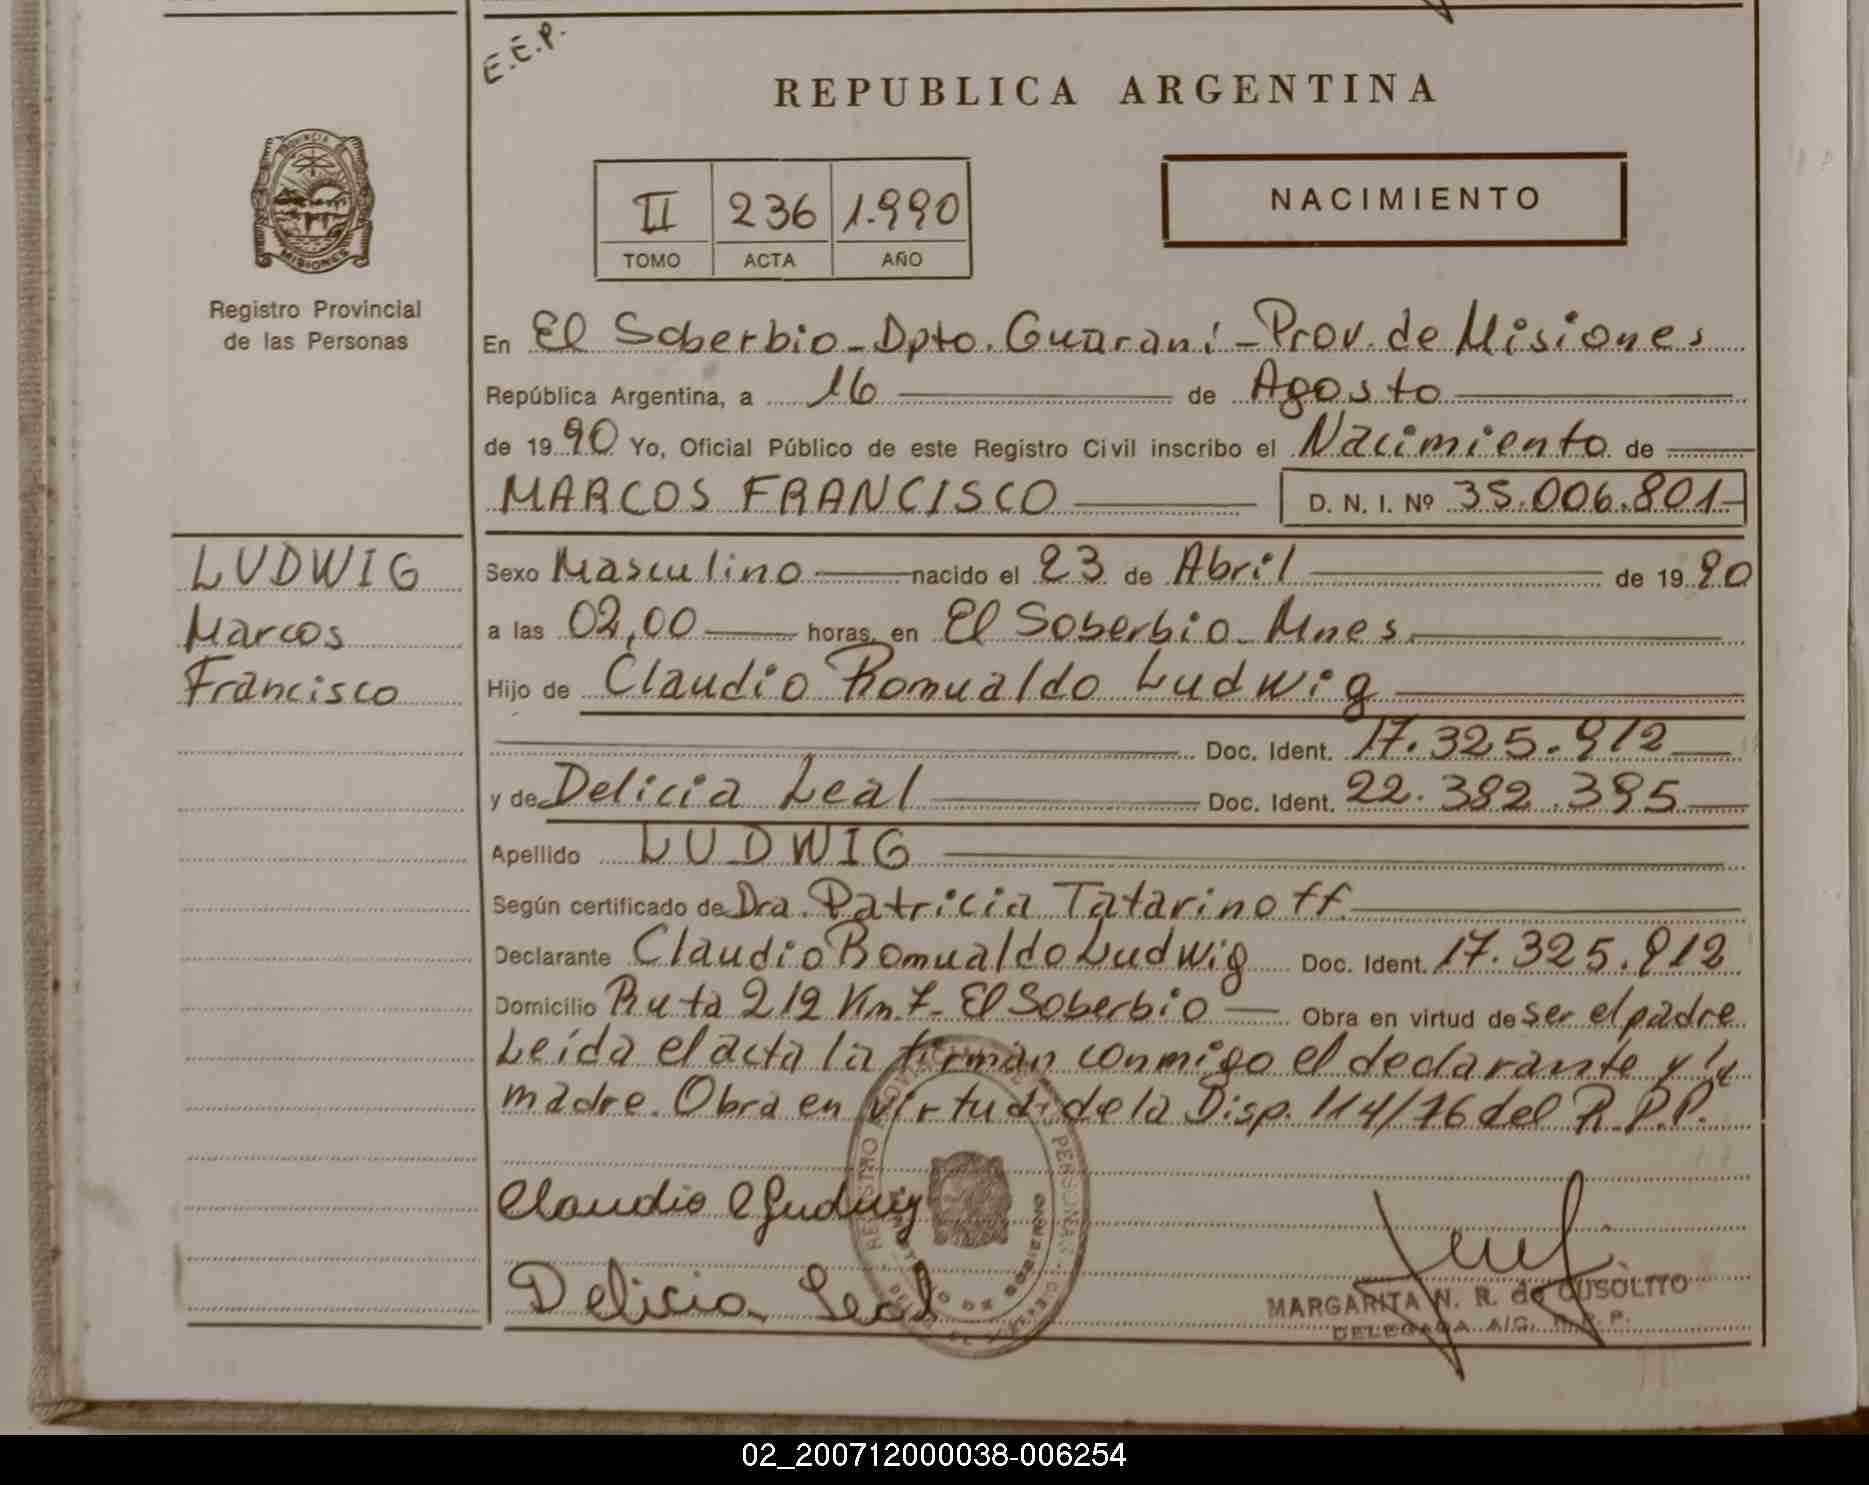 E.E.P.
REPUBLICA ARGENTINA
PROVINCIA DE
MISIONES
Registro Provincial
de las Personas
II 236 1.990
TOMO ACTA AÑO
NACIMIENTO
En El Soberbio - Dpto. Guaraní - Prov. de Misiones
República Argentina, a 16 de Agosto
de 1990 Yo, Oficial Público de este Registro Civil inscribo el Nacimiento de
MARCOS FRANCISCO D. N. I. Nº 35.006.801-
LUDWIG
Marcos
Francisco
Sexo Masculino nacido el 23 de Abril de 1990
a las 02,00 horas, en El Soberbio - Mnes.
Hijo de Claudio Romualdo Ludwig
Doc. Ident. 17.325.912
y de Delicia Leal Doc. Ident. 22.382.395
Apellido LUDWIG
Según certificado de Dra. Patricia Tatarinoff
Declarante Claudio Romualdo Ludwig Doc. Ident. 17.325.912
Domicilio Ruta 212 Km. 7 - El Soberbio Obra en virtud de ser el padre
Leída el acta la firman conmigo el declarante y la
madre. Obra en virtud de la Disp. 114/76 del R.P.P.
Claudio R Ludwig
Delicia Leal
MARGARITA N. R. de CUSOLITO
DELEGADA A/C. R. P. P.
02_200712000038-006254